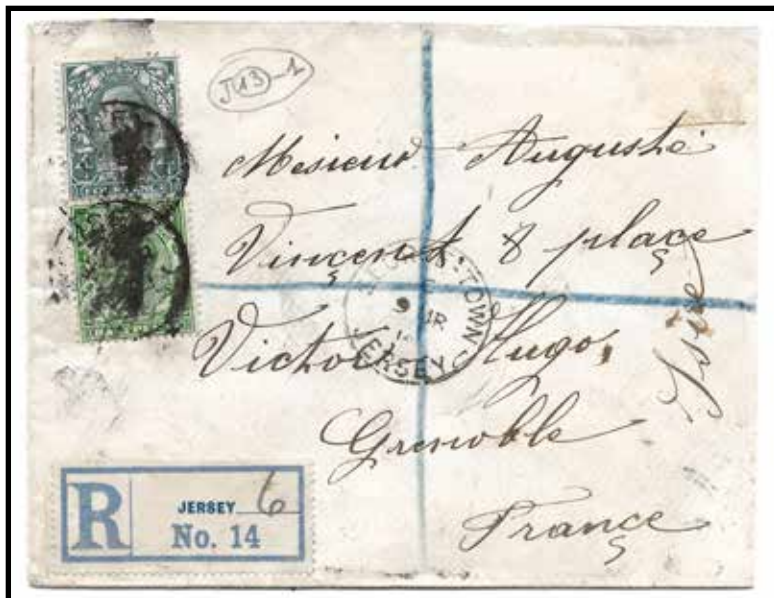 J13-1
Mesieur Auguste
Vinçent. 8 plaçe
Victor Hugo,
Grenoble
Isère
Françe
TOWN
9 MR
JERSEY
R
JERSEY 6
No. 14